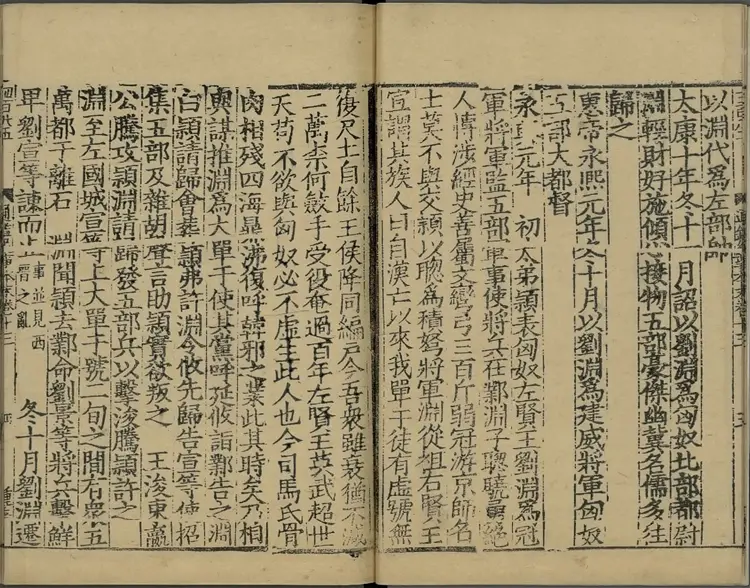 以淵代爲左部帥
太康十年冬十月詔以劉淵爲匈奴北部都尉
淵輕財好施傾接物五部豪傑幽冀名儒多往
歸之
惠帝永熙元年冬十月以劉淵爲建威將軍匈奴
五部大都督
永興元年 初太弟穎表匈奴左賢王劉淵爲冠
軍將軍監五部軍事使將兵在鄴淵子聰驍勇絕
人博涉經史善屬文彎弓三百斤弱冠游京師名
士莫不與交穎以聰爲積弩將軍淵從祖右賢王
宣謂其族人曰自漢亡以來我單于徒有虛號無
復尺土自餘王侯降同編戶今吾衆雖衰猶不減
二萬柰何斂手受役奄過百年左賢王英武超世
天苟不欲興匈奴必不虛生此人也今司馬氏骨
肉相殘四海鼎沸復呼韓邪之業此其時矣乃相
與謀推淵爲大單于使其黨呼延攸詣鄴告之淵
白穎請歸會葬穎弗許淵令攸先歸告宣等使招
集五部及雜胡聲言助穎實欲叛之 王浚東嬴
公騰攻穎淵請歸發五部兵以擊浚騰穎許之
淵至左國城宣等上大單于號二旬之間有衆五
萬都于離石 淵聞穎去鄴命劉景等將兵擊鮮
卑劉宣等諫而止 事並見西晉之亂 冬十月劉淵遷